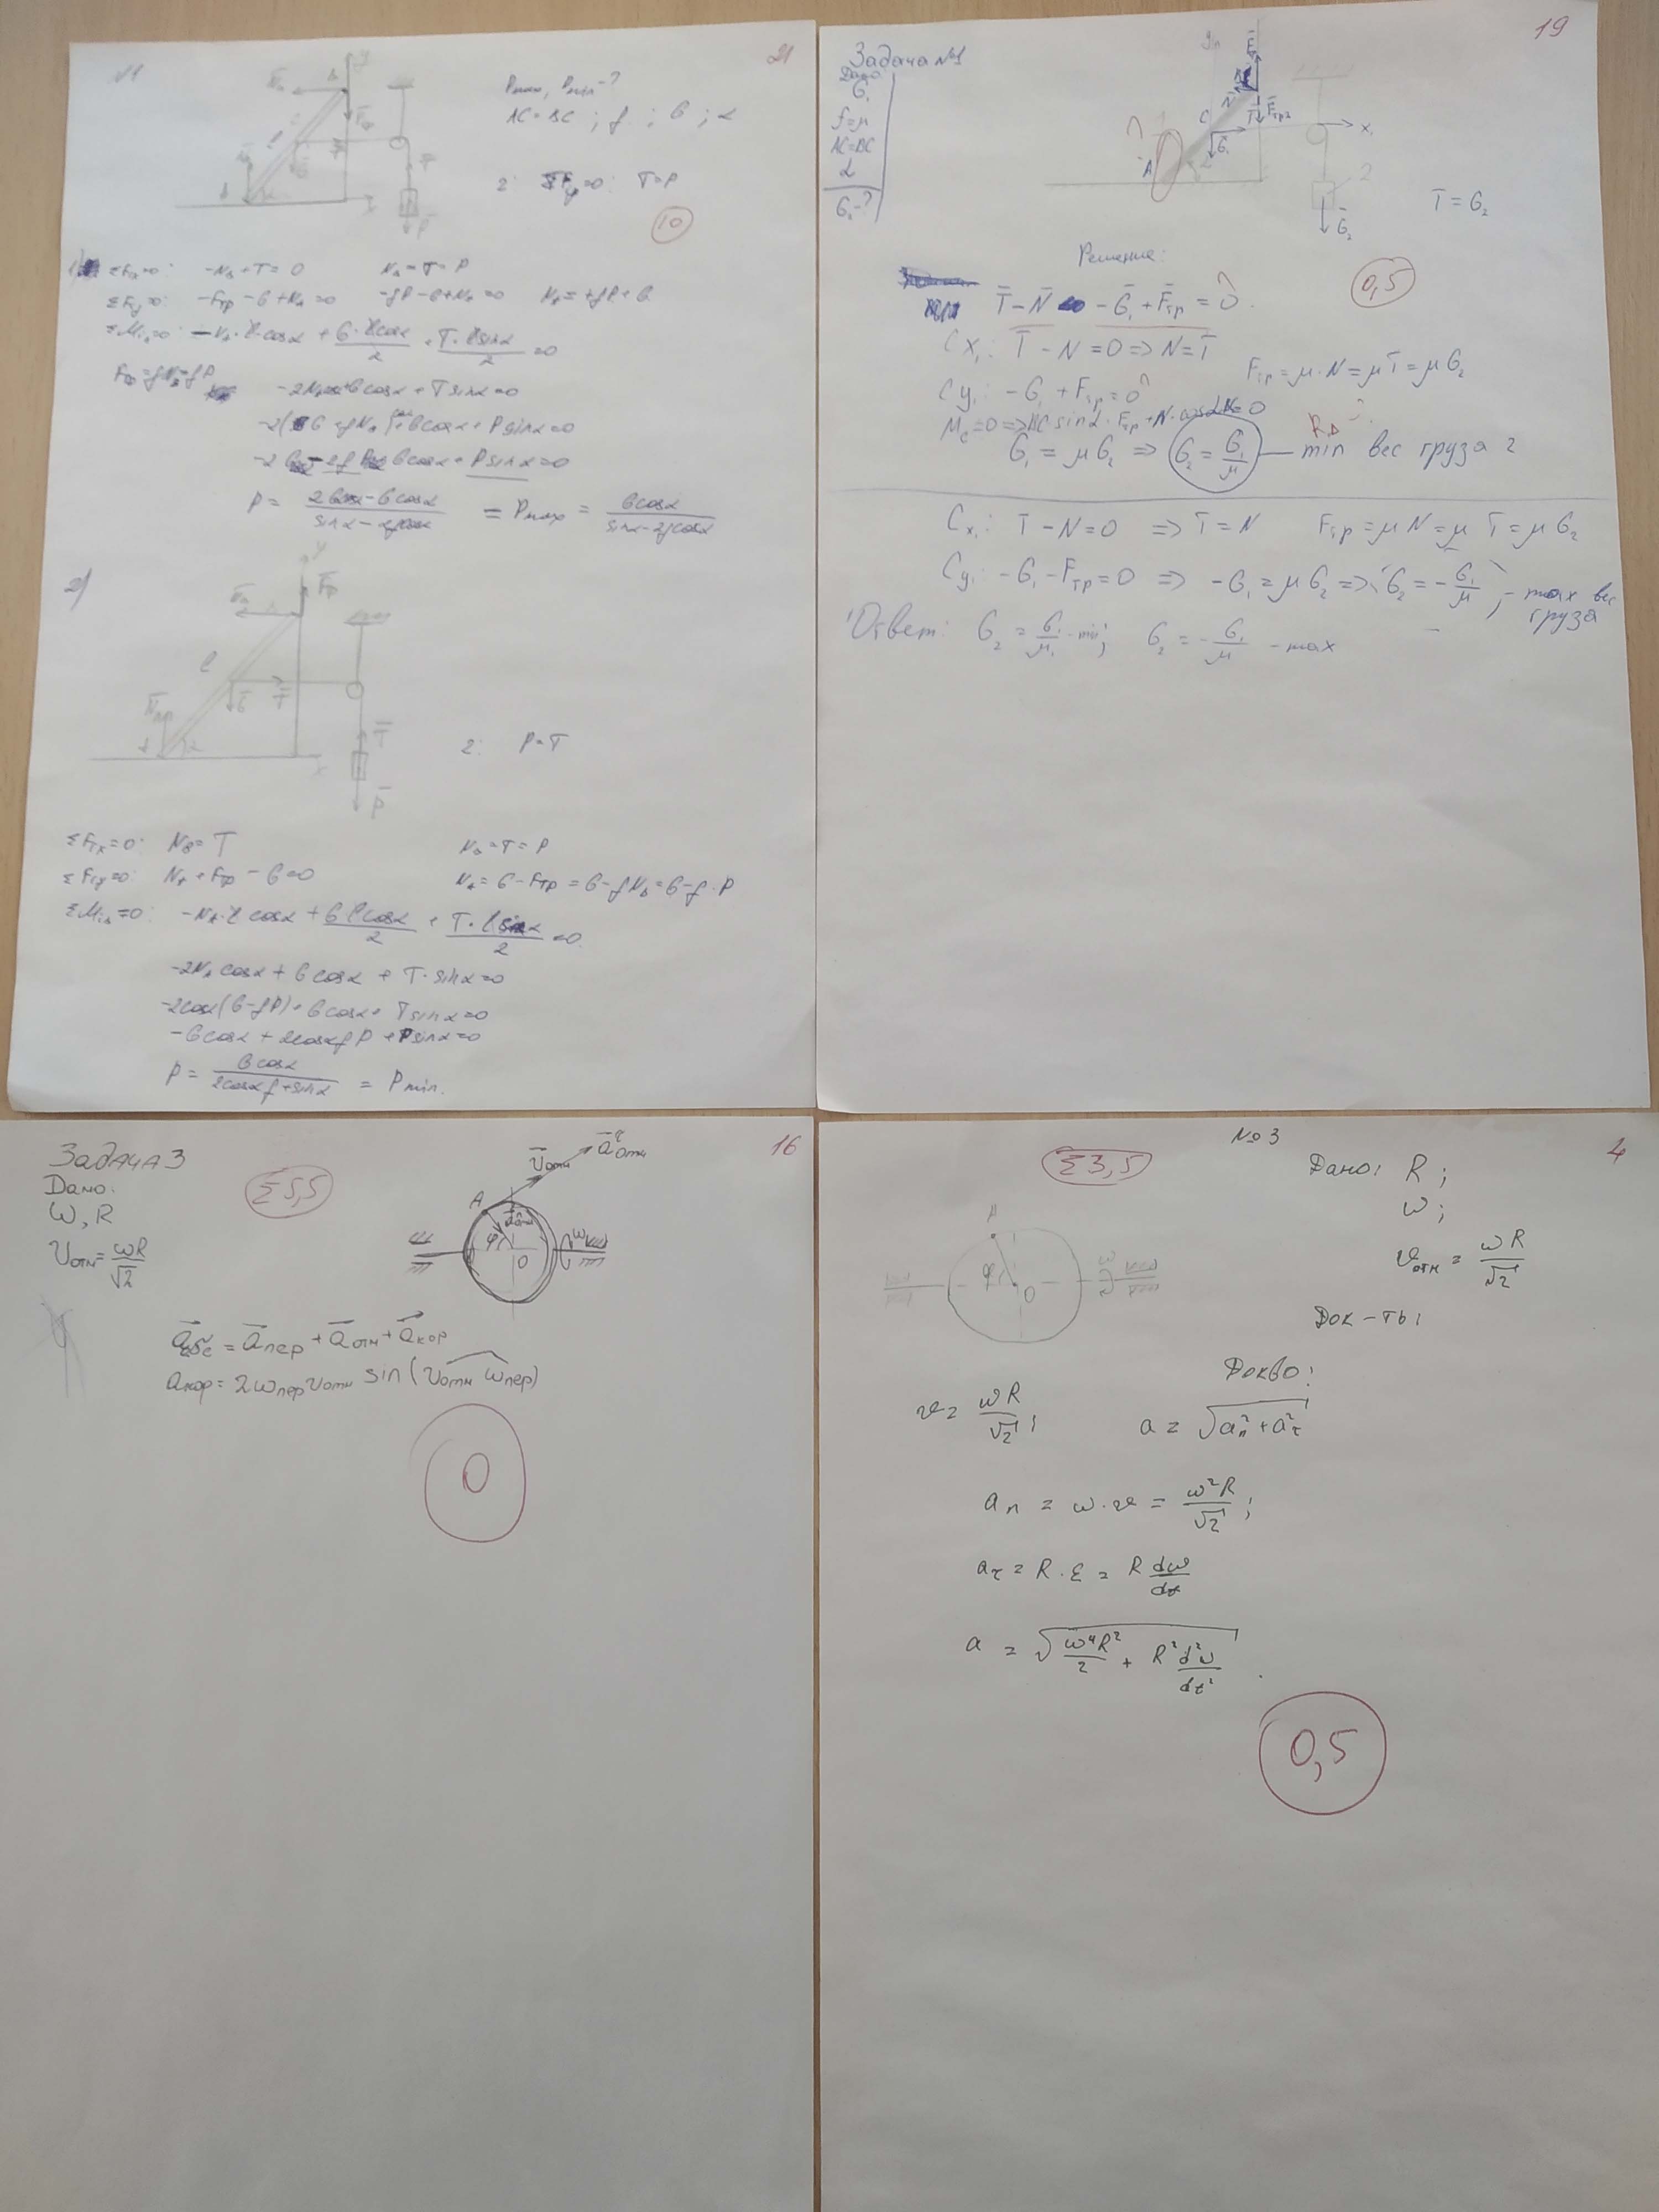 21
N1
Pmax, Pmin-?
AC=BC ; f ; G ; α
2: ΣFy=0: T=P
10
ΣFx=0: -NB+T=0 NB=T=P
ΣFy=0: -Fтр-G+NA=0 -fP-G+NA=0 NA=+fP+G
ΣMiB=0: -NA·l·cosα + G·lcosα/2 + T·lsinα/2 =0
Fтр=fNB=fP
-2NAcosα+Gcosα+Tsinα=0
P= = Pmax = Gcosα/(sinα-2fcosα)
2)
2: P=T
ΣFix=0: NB=T NB=T=P
ΣFiy=0: NA+Fтр-G=0 NA=G-Fтр=G-fNB=G-f·P
ΣMiB=0: -NA·l cosα + G l cosα/2 + T·l sinα/2 =0
-2NA cosα + G cosα + T·sinα=0
-2cosα(G-fP)+Gcosα+Tsinα=0
-Gcosα + 2cosαfP +Psinα=0
P = Gcosα/(2cosαf+sinα) = Pmin.
19
Задача №1
Дано
G₁
f=μ
AC=BC
α
G₂-?
T̄ = G₂
Решение:
0,5
T̄-N̄ -Ḡ₁+F̄тр=0.
Cx₁: T̄-N=0=>N=T̄
Fтр=μ·N=μT̄=μG₂
Cy₁: -G₁+Fтр=0
Mc=0=>AC sinα·Fтр+N·cosα =0
G₁ = μG₂ => G₂=G₁/μ — min вес груза 2
Cx₁: T-N=0 =>T=N Fтр=μN=μT=μG₂
Cy₁: -G₁-Fтр=0 => -G₁=μG₂=> G₂=-G₁/μ, - max вес
груза
Ответ: G₂=G₁/μ-min; G₂=-G₁/μ -max
16
Задача 3
Дано:
ω, R
Vотн=ωR/√2
Σ5,5
v̄отн āᵗотн
A
φ O ω
āабс = āпер+āотн+āкор
aкор=2ωпер vотн sin(vотн ωпер)
0
4
№3
Σ3,5
Дано: R;
ω;
vотн = ωR/√2
Док-ть:
A
φ O ω
Докво:
v=ωR/√2; a = √(aₙ²+a²τ)
aₙ = ω·v = ω²R/√2;
aτ = R·ε = R dω/dt
a = √(ω⁴R²/2 + R² d²ω/dt²).
0,5